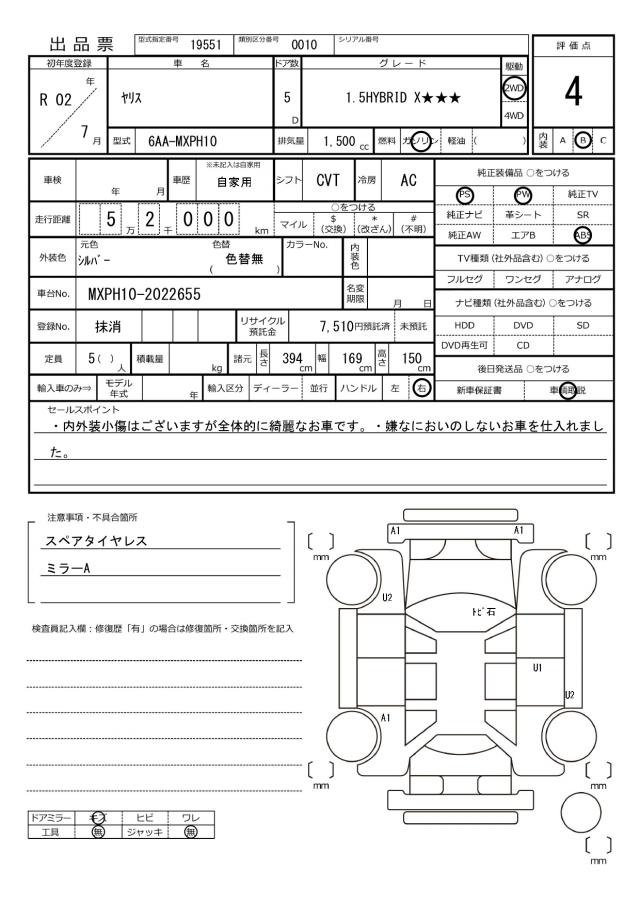 出品票
型式指定番号 19551 類別区分番号 0010 シリアル番号
評価点
4
初年度登録 車名 ドア数 グレード 駆動
R 02 年 7 月
ヤリス
5 D
1.5HYBRID X★★★
2WD
4WD
型式 6AA-MXPH10 排気量 1,500 cc 燃料 ガソリン 軽油 ( )
内装 A B C
車検 年 月
車歴 ※未記入は自家用 自家用
シフト CVT 冷房 AC
走行距離 5 万 2 千 0 0 0 km
○をつける
マイル $(交換) *(改ざん) #(不明)
外装色 元色 シルバー 色替 ( 色替無 ) カラーNo. 内装色
車台No. MXPH10-2022655 名変期限 月 日
登録No. 抹消 リサイクル預託金 7,510円預託済 未預託
定員 5( ) 人 積載量 kg 諸元 長さ 394 cm 幅 169 cm 高さ 150 cm
輸入車のみ⇒ モデル年式 年 輸入区分 ディーラー 並行 ハンドル 左 右
純正装備品 ○をつける
PS PW 純正TV
純正ナビ 革シート SR
純正AW エアB ABS
TV種類 (社外品含む) ○をつける
フルセグ ワンセグ アナログ
ナビ種類 (社外品含む) ○をつける
HDD DVD SD
DVD再生可 CD
後日発送品 ○をつける
新車保証書 車輌取説
セールスポイント
・内外装小傷はございますが全体的に綺麗なお車です。・嫌なにおいのしないお車を仕入れまし
た。
注意事項・不具合箇所
スペアタイヤレス
ミラーA
検査員記入欄：修復歴「有」の場合は修復箇所・交換箇所を記入
ドアミラー キズ ヒビ ワレ
工具 無 ジャッキ 無
A1 A1
mm mm
U2
トビ石
U1
U2
A1
mm mm
mm